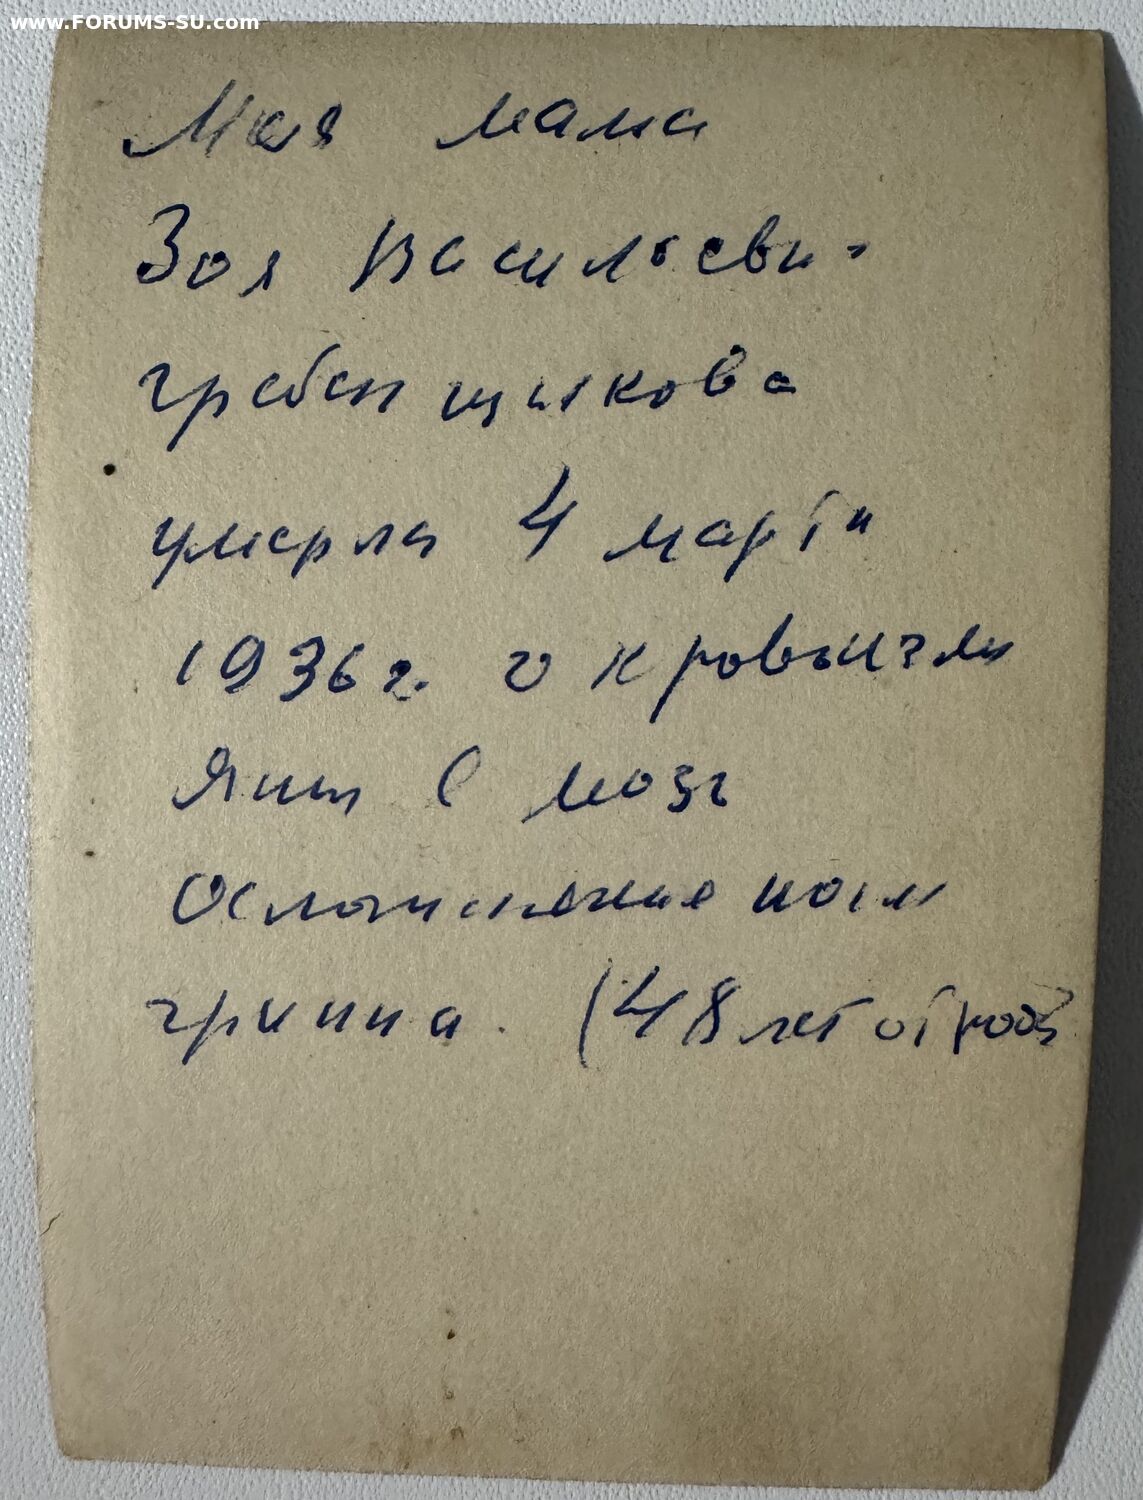 www.FORUMS-SU.com
Моя мама
Зоя Васильевн-
гребенщикова
умерла 4 марта
1936 г. о кровоизли
яния в мозг
Осложнение после
гриппа. (48 лет от род